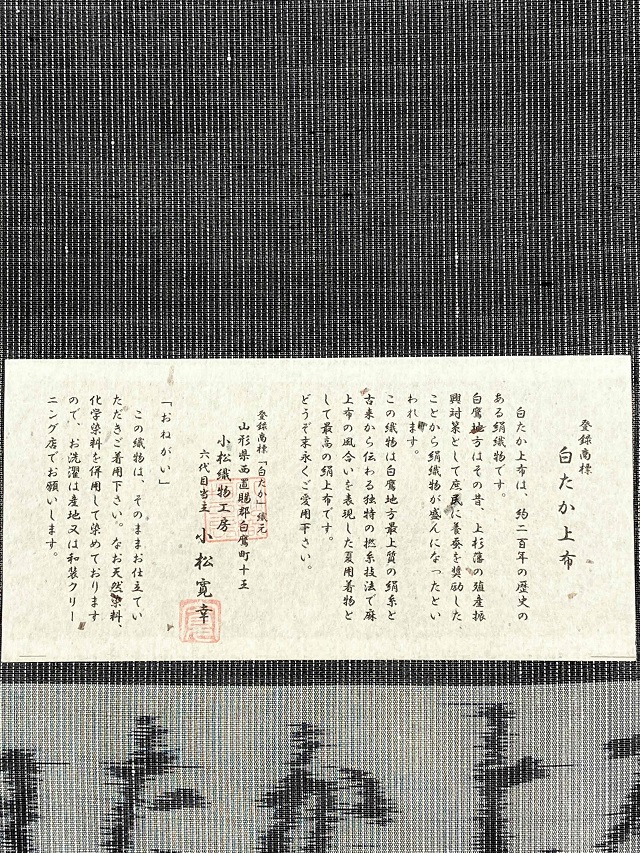 登録商標
白たか上布
白たか上布は、約二百年の歴史の
ある絹織物です。
白鷹地方はその昔、上杉藩の殖産振
興対策として庶民に養蚕を奨励した
ことから絹織物が盛んになったとい
われます。
この織物は白鷹地方最上質の絹糸と
古来から伝わる独特の撚糸技法で麻
上布の風合いを表現した夏用着物と
して最高の絹上布です。
どうぞ末永くご愛用下さい。
登録商標「白たか」織元
山形県西置賜郡白鷹町十王
小松織物工房
六代目当主 小松寛幸
「おねがい」
この織物は、そのままお仕立てい
ただきご着用下さい。なお天然染料、
化学染料を併用して染めております
ので、お洗濯は産地又は和装クリー
ニング店でお願いします。
たか上